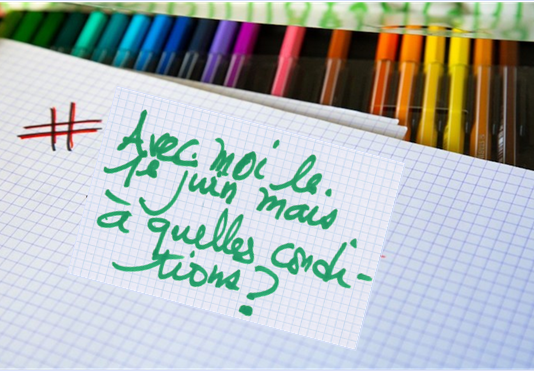 #
Avec moi le
1e juin mais
à quelles condi-
tions?